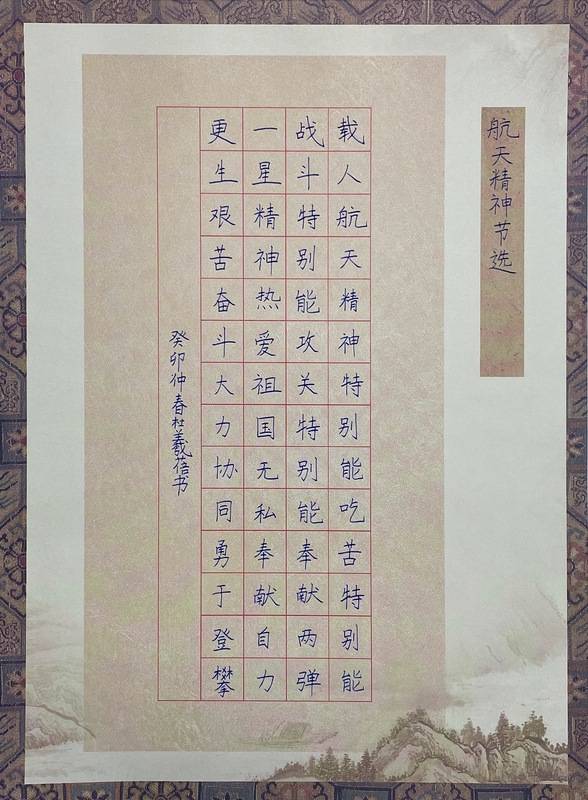 航天精神节选
载人航天精神特别能吃苦特别能
战斗特别能攻关特别能奉献两弹
一星精神热爱祖国无私奉献自力
更生艰苦奋斗大力协同勇于登攀
癸卯仲春杜羲蓓书